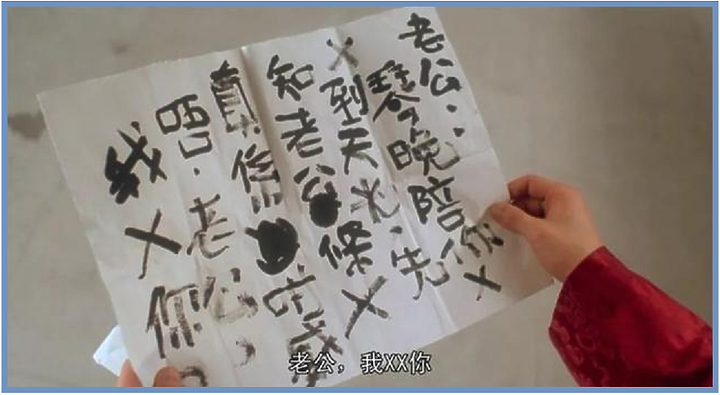 老公：
琴晚陪你X
X到天光，先
知老公●條X
真係●咁威
唔。老公，
我X你。
老公，我XX你